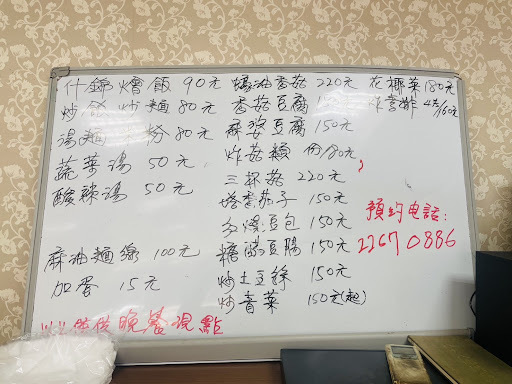 什錦燴飯 90元
炒飯 炒麵 80元
湯麵 粉 80元
蔬菜湯 50元
酸辣湯 50元
麻油麵線 100元
加蛋 15元
晚餐現點
蠔油香菇 220元
香菇豆腐
麻婆豆腐 150元
炸菇類
三杯菇 220元
塔香茄子 150元
豆包 150元
糖醋豆腸 150元
炒土豆絲 150元
炒青菜 150元(起)
花椰菜 180元
預約电話:
2267 0886